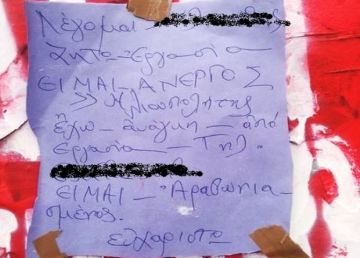 Λέγομαι
Ζητω - Εργασία
ΕΙΜΑΙ - ΑΝΕΡΓΟΣ
>> Ηλιουπολητης
ἔχω - αναγκη - από
εργασία - Τηλ.
ΕΙΜΑΙ - Αραβωνια-
σμένος.
ευχαριστω